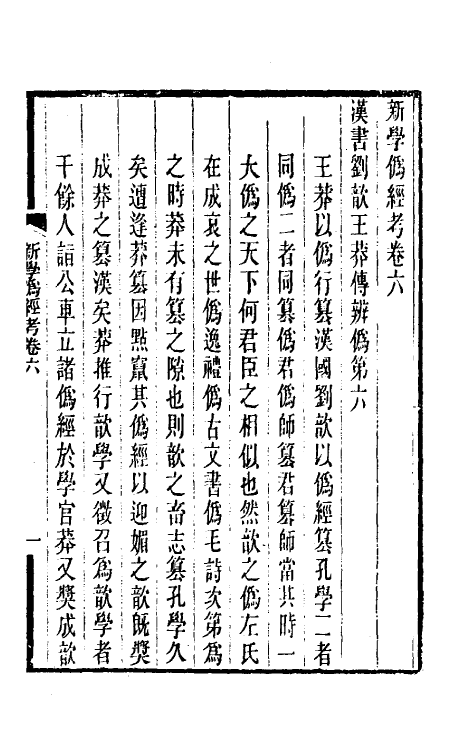 新學僞經考卷六
漢書劉歆王莽傳辨僞第六
王莽以僞行篡漢國劉歆以僞經篡孔學二者
同僞二者同篡僞君僞師篡君篡師當其時一
大僞之天下何君臣之相似也然歆之僞左氏
在成哀之世僞逸禮僞古文書僞毛詩次第爲
之時莽未有篡之隙也則歆之畜志篡孔學久
矣遭逢莽篡因點竄其僞經以迎媚之歆既獎
成莽之篡漢矣莽推行歆學又徵召爲歆學者
千餘人詣公車立諸僞經於學官莽又獎成歆
新學僞經考卷六
一